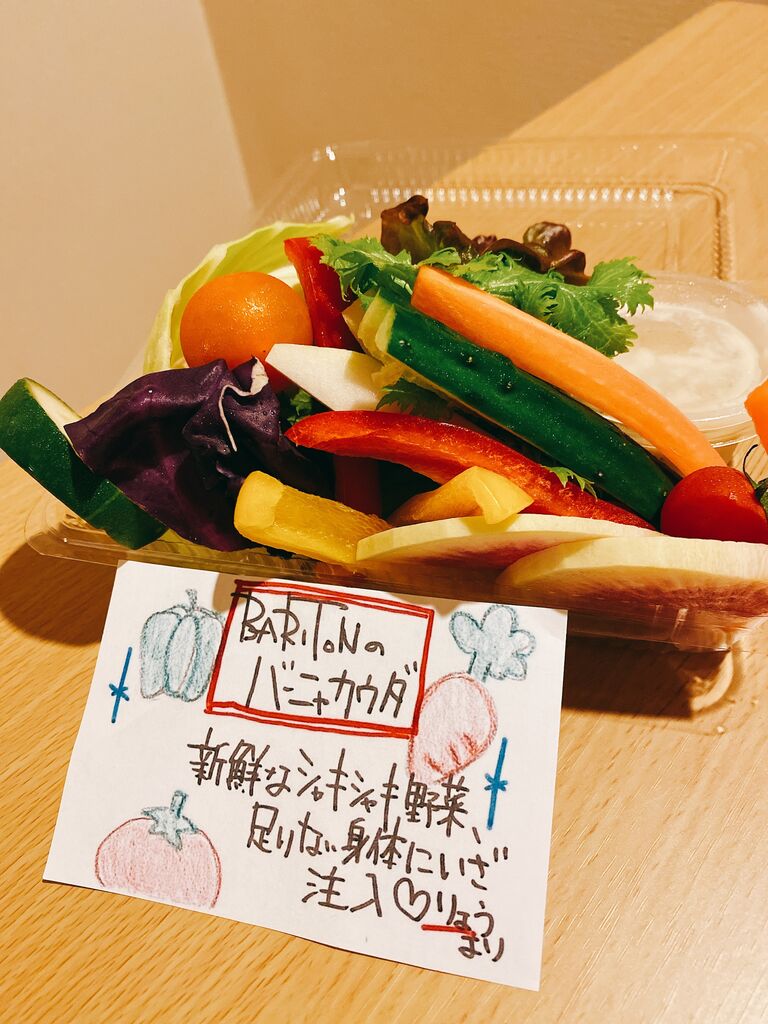 BARITONの
バーニャカウダ
新鮮なシャキシャキ野菜、
足りない身体にいざ
注入♡りょう
より